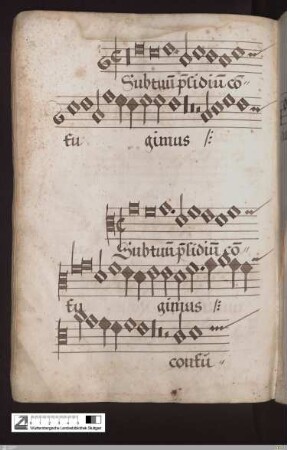 Sub tuũ p̃sidiũ cõ-
fu gimus /:
Sub tuũ p̃sidiũ cõ-
fu gimus /:
confu-
Württembergische Landesbibliothek Stuttgart